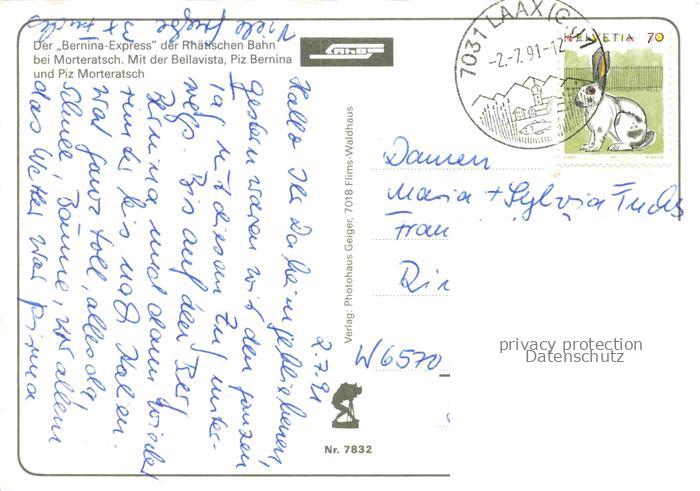 Der „Bernina-Express" der Rhätischen Bahn
bei Morteratsch. Mit der Bellavista, Piz Bernina
und Piz Morteratsch
RhB
7031 LAAX (GR) 1
-2.-7.91-12
HELVETIA 70
2.7.91
Hallo Ihr Daheimgebliebenen,
gestern waren wir den ganzen
Tag mit diesem Zug unter-
wegs. Bis auf den Berg
Bernina und dann wieder
runter bis nach Italien.
War ganz toll, alles da,
Schnee, Bäume, vor allem
das Wetter war prima
Viele Grüße 3x Fuchs
Verlag: Photohaus Geiger, 7018 Flims-Waldhaus
Nr. 7832
Damen
Maria + Sylvia Fuchs
Fran
Rin
W6570
privacy protection
Datenschutz